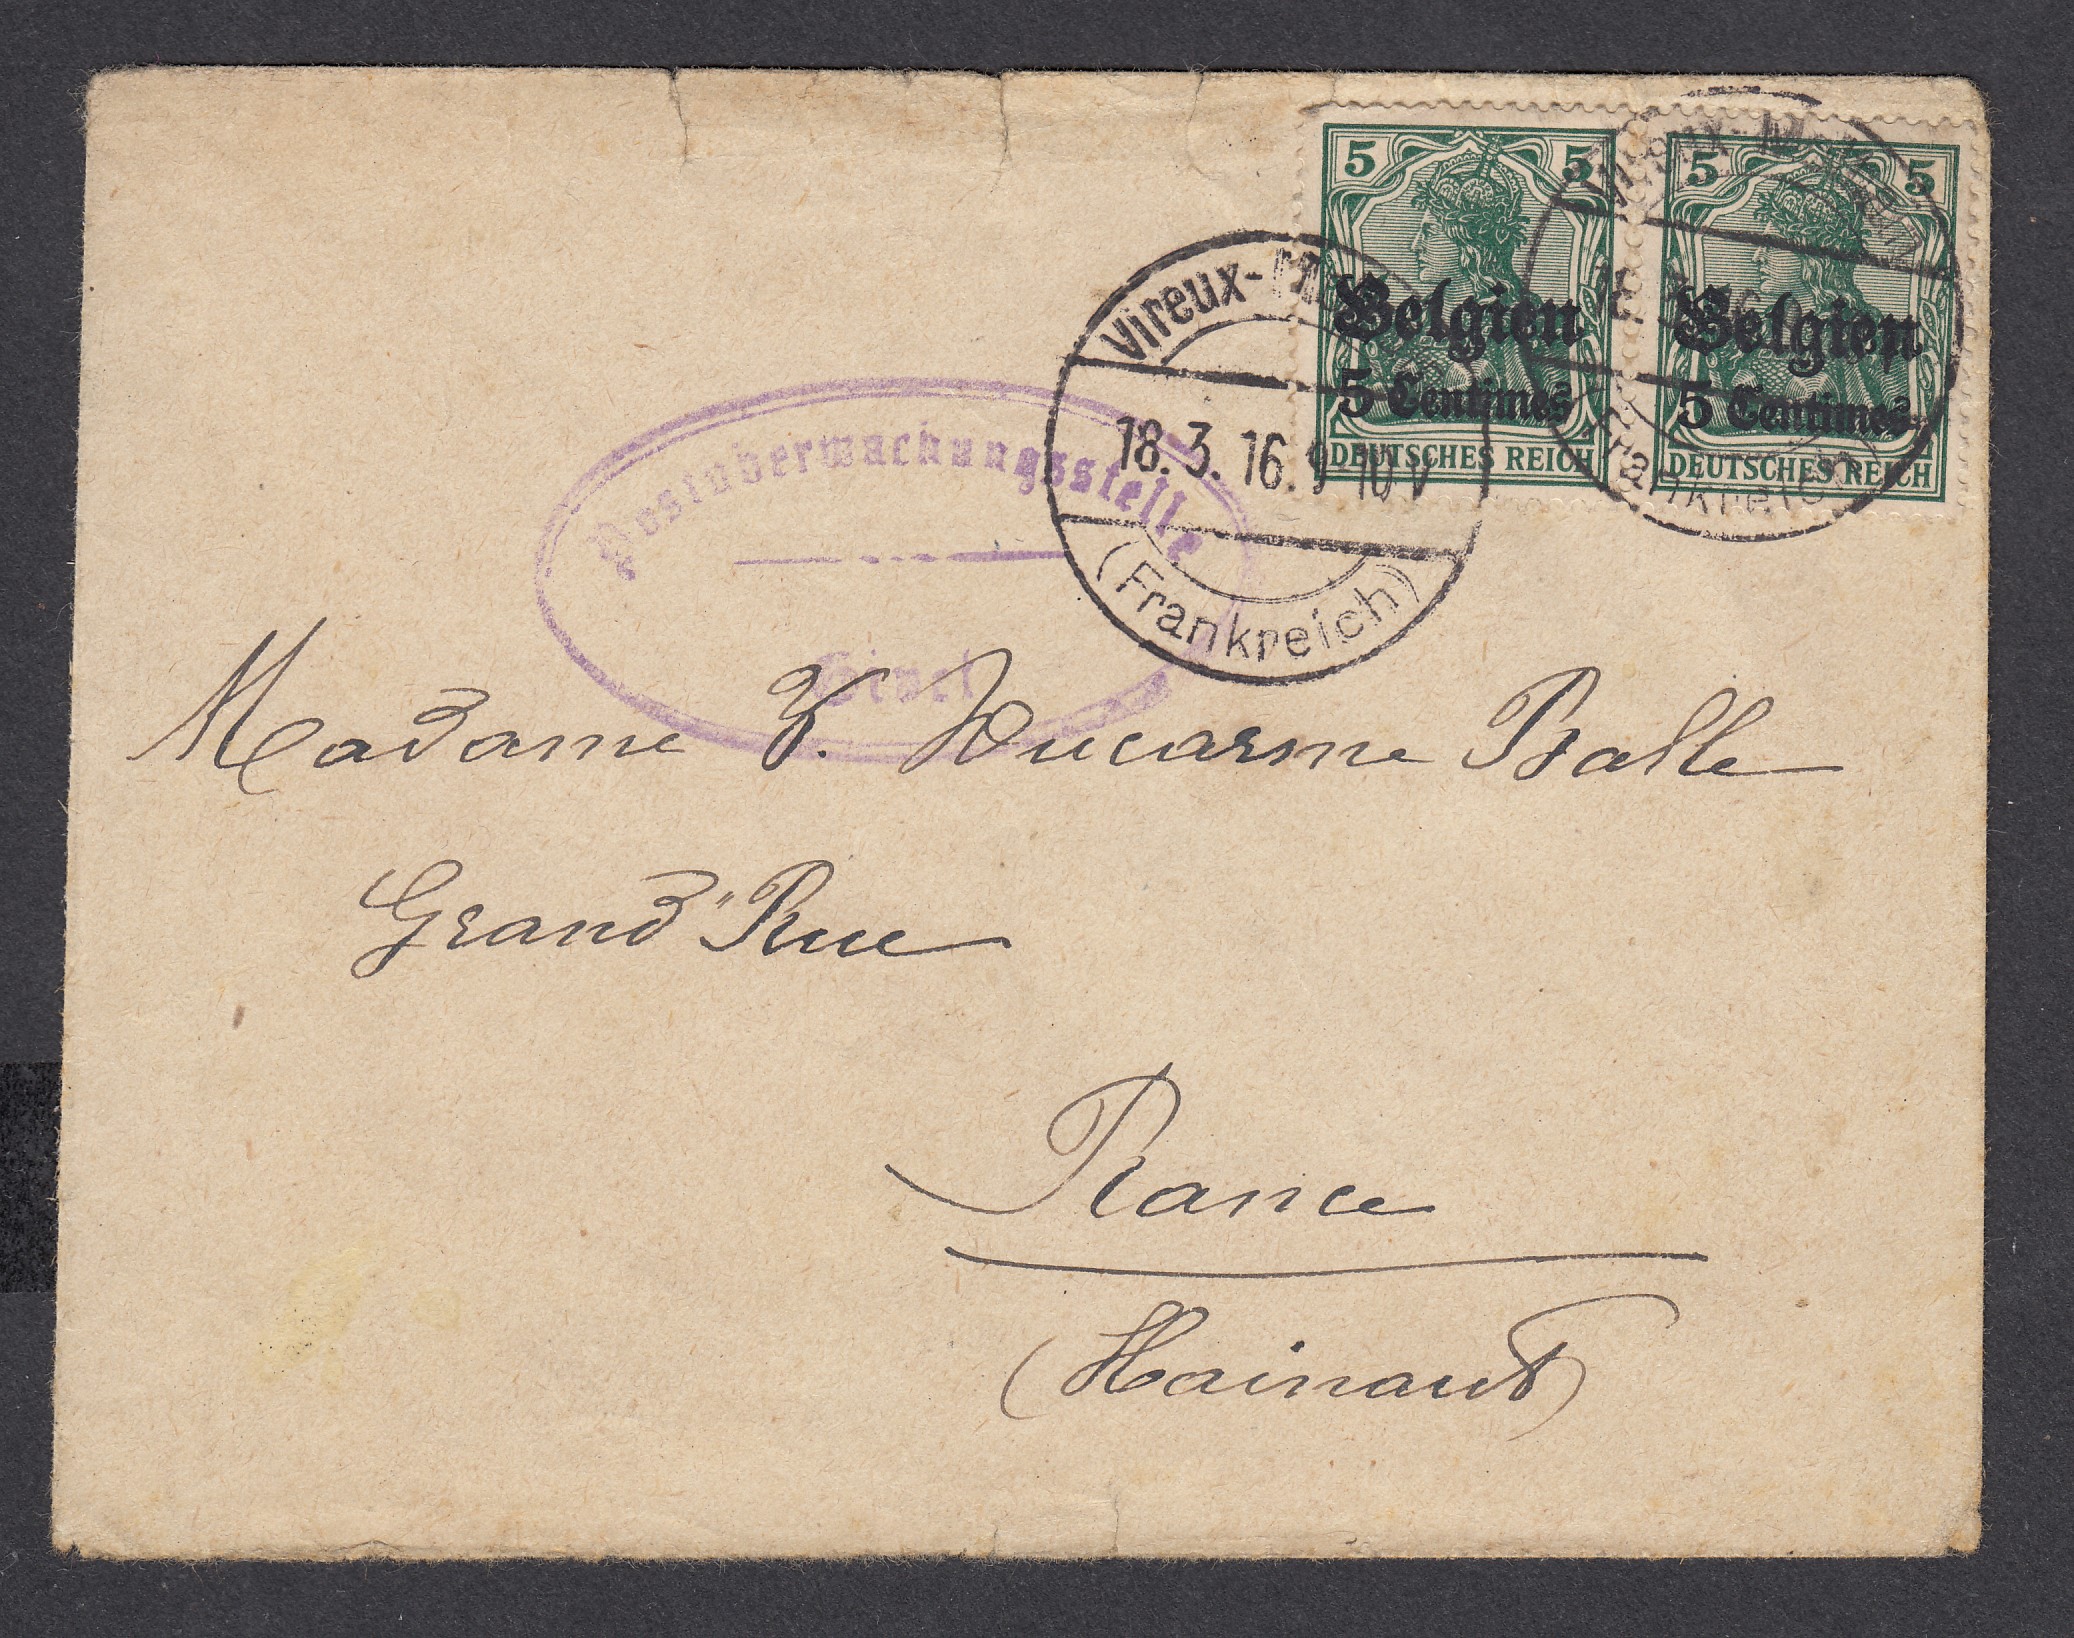 5 5
Belgien
5 Centimes
DEUTSCHES REICH
5 5
Belgien
5 Centimes
DEUTSCHES REICH
Vireux-
18.3.16.9-10V
(Frankreich)
Vireux-
18.
(Frankreich)
Postüberwachungsstelle
Madame V. Ducarme Balle
Grand'Rue
Rance
(Hainaut)